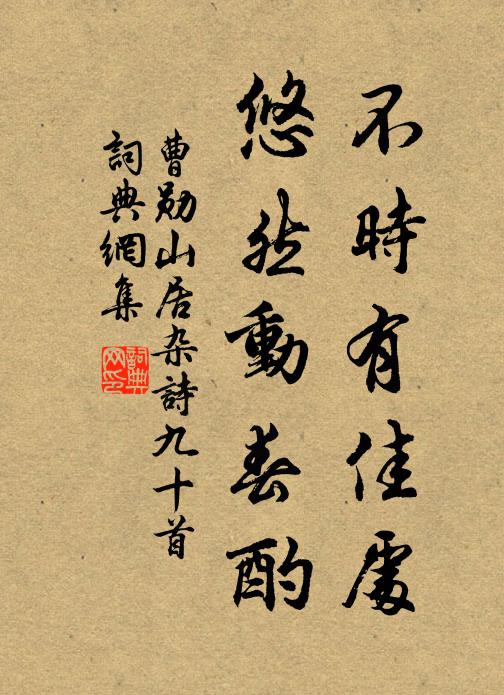 不時有佳處
悠然動春酌
曹勛山居杂詩九十首
詞典網集
詞典網印